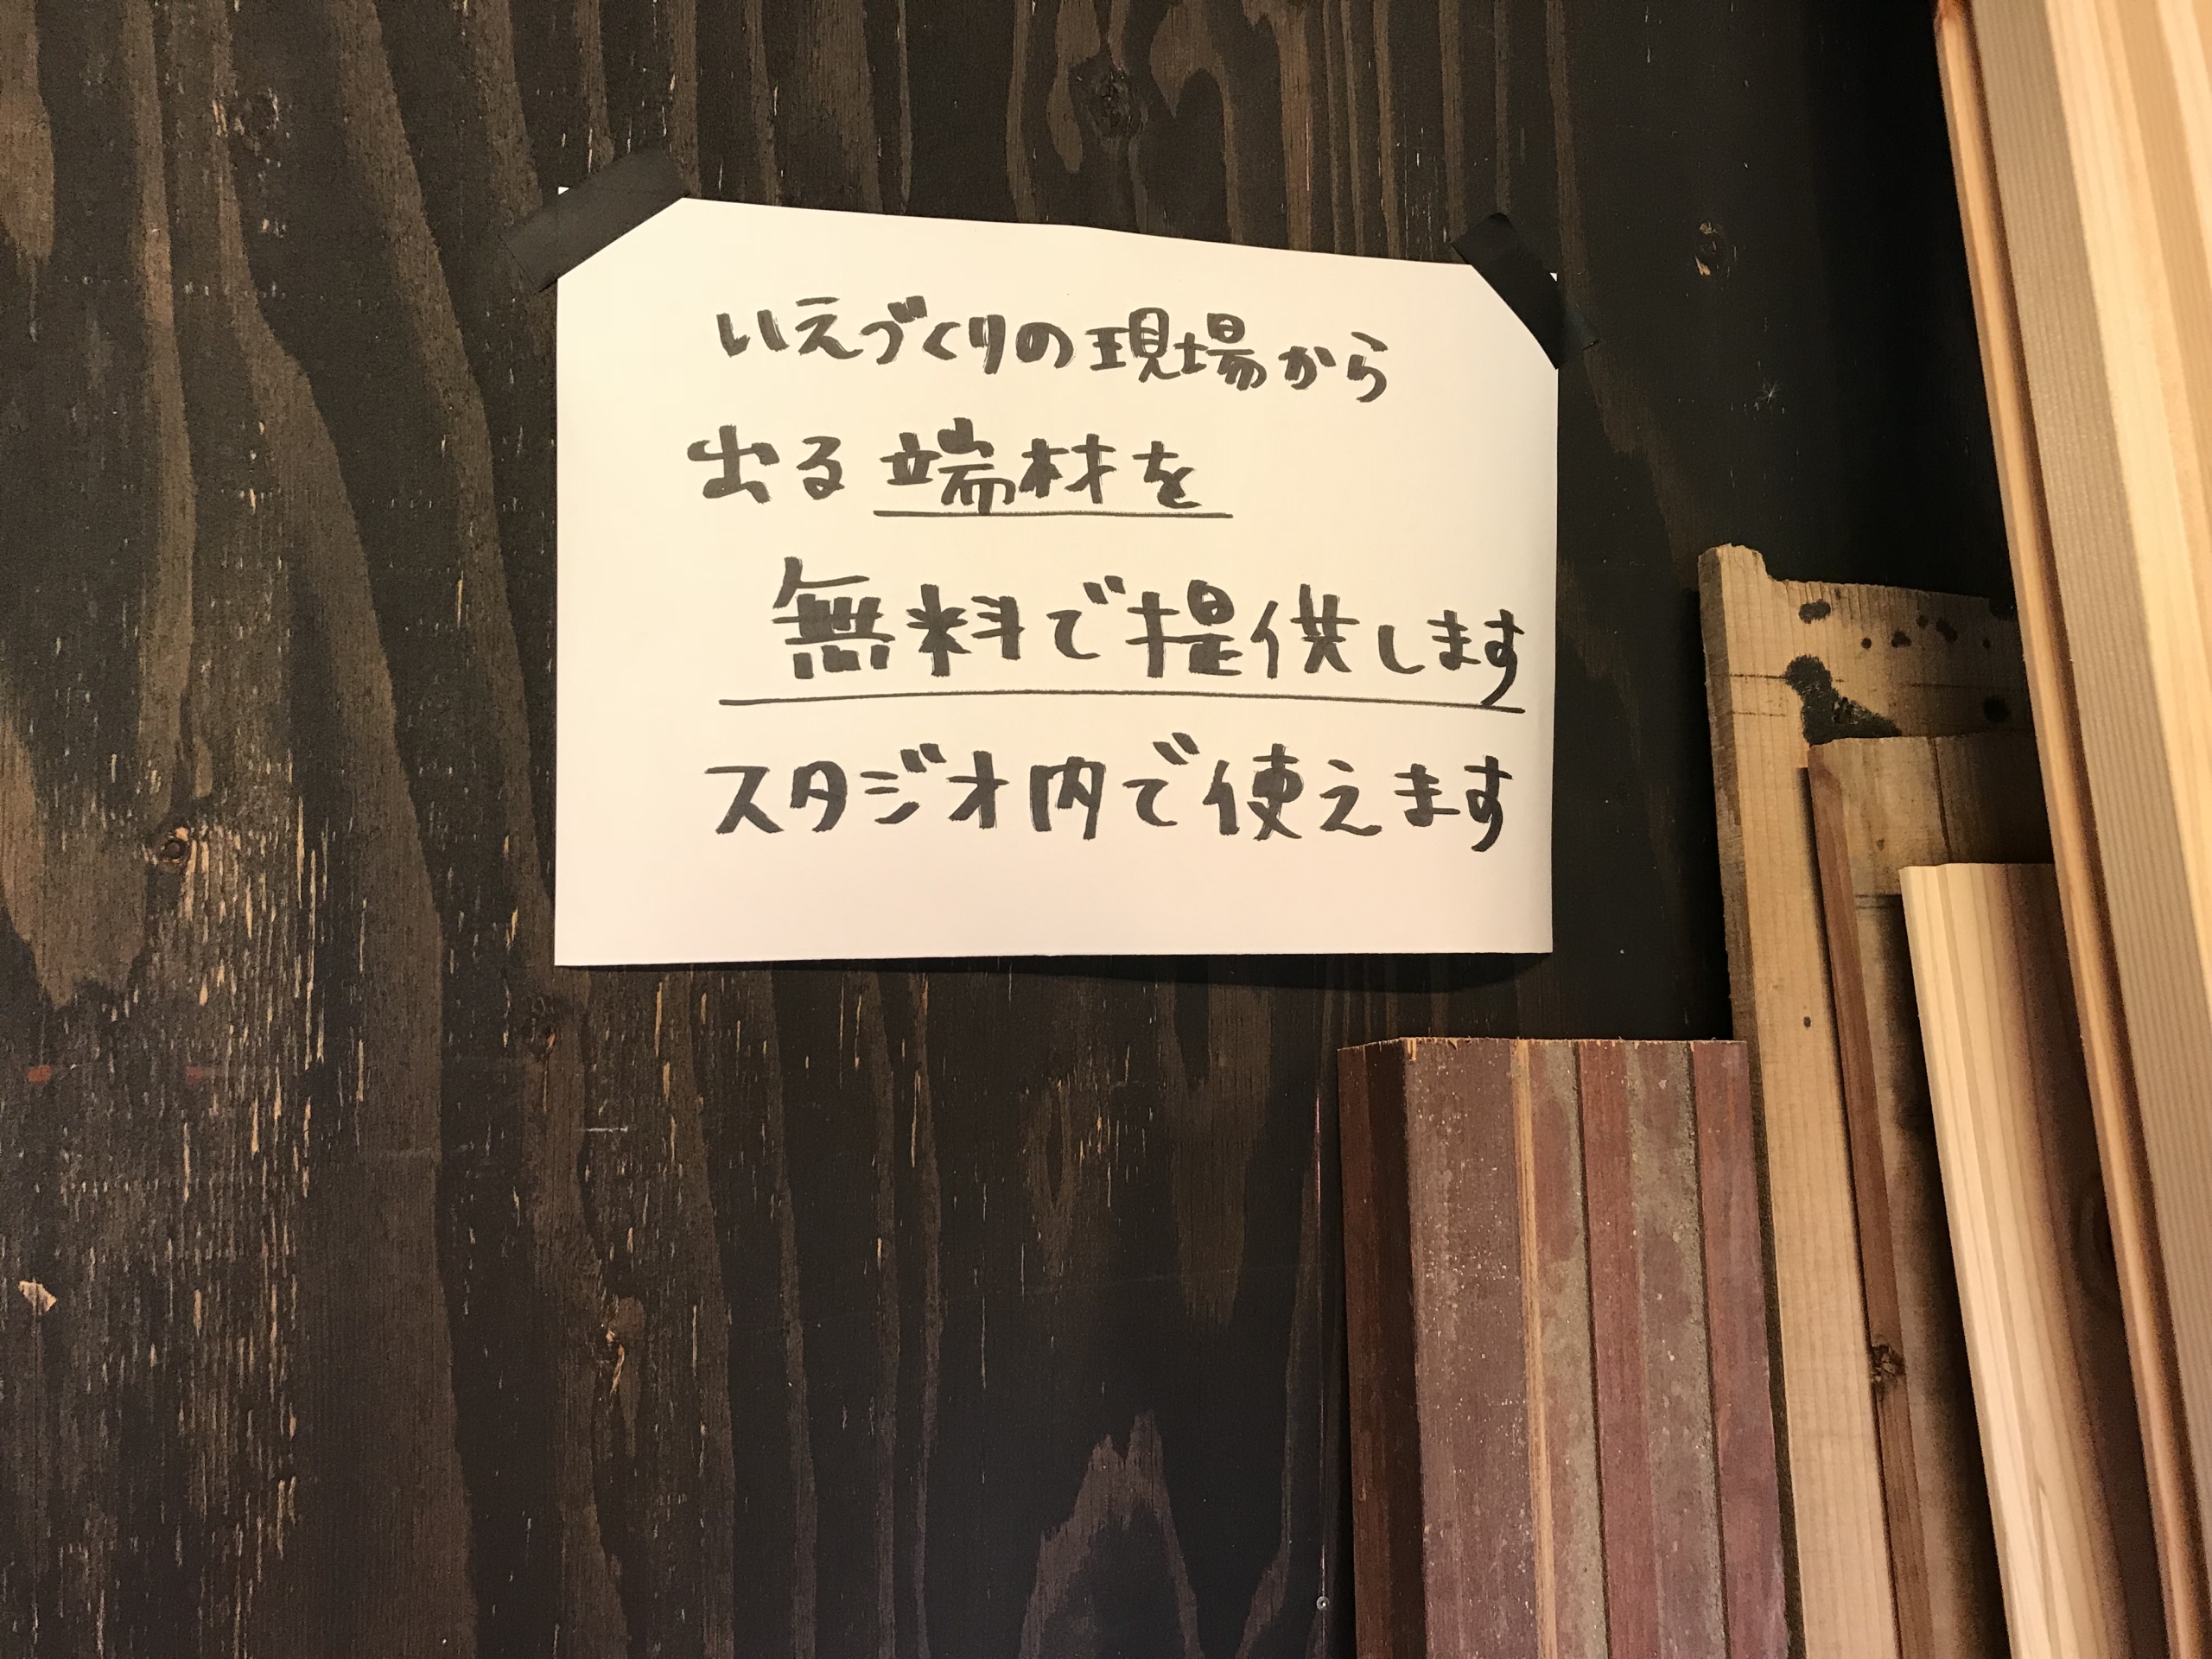 いえづくりの現場から
出る端材を
無料で提供します
スタジオ内で使えます